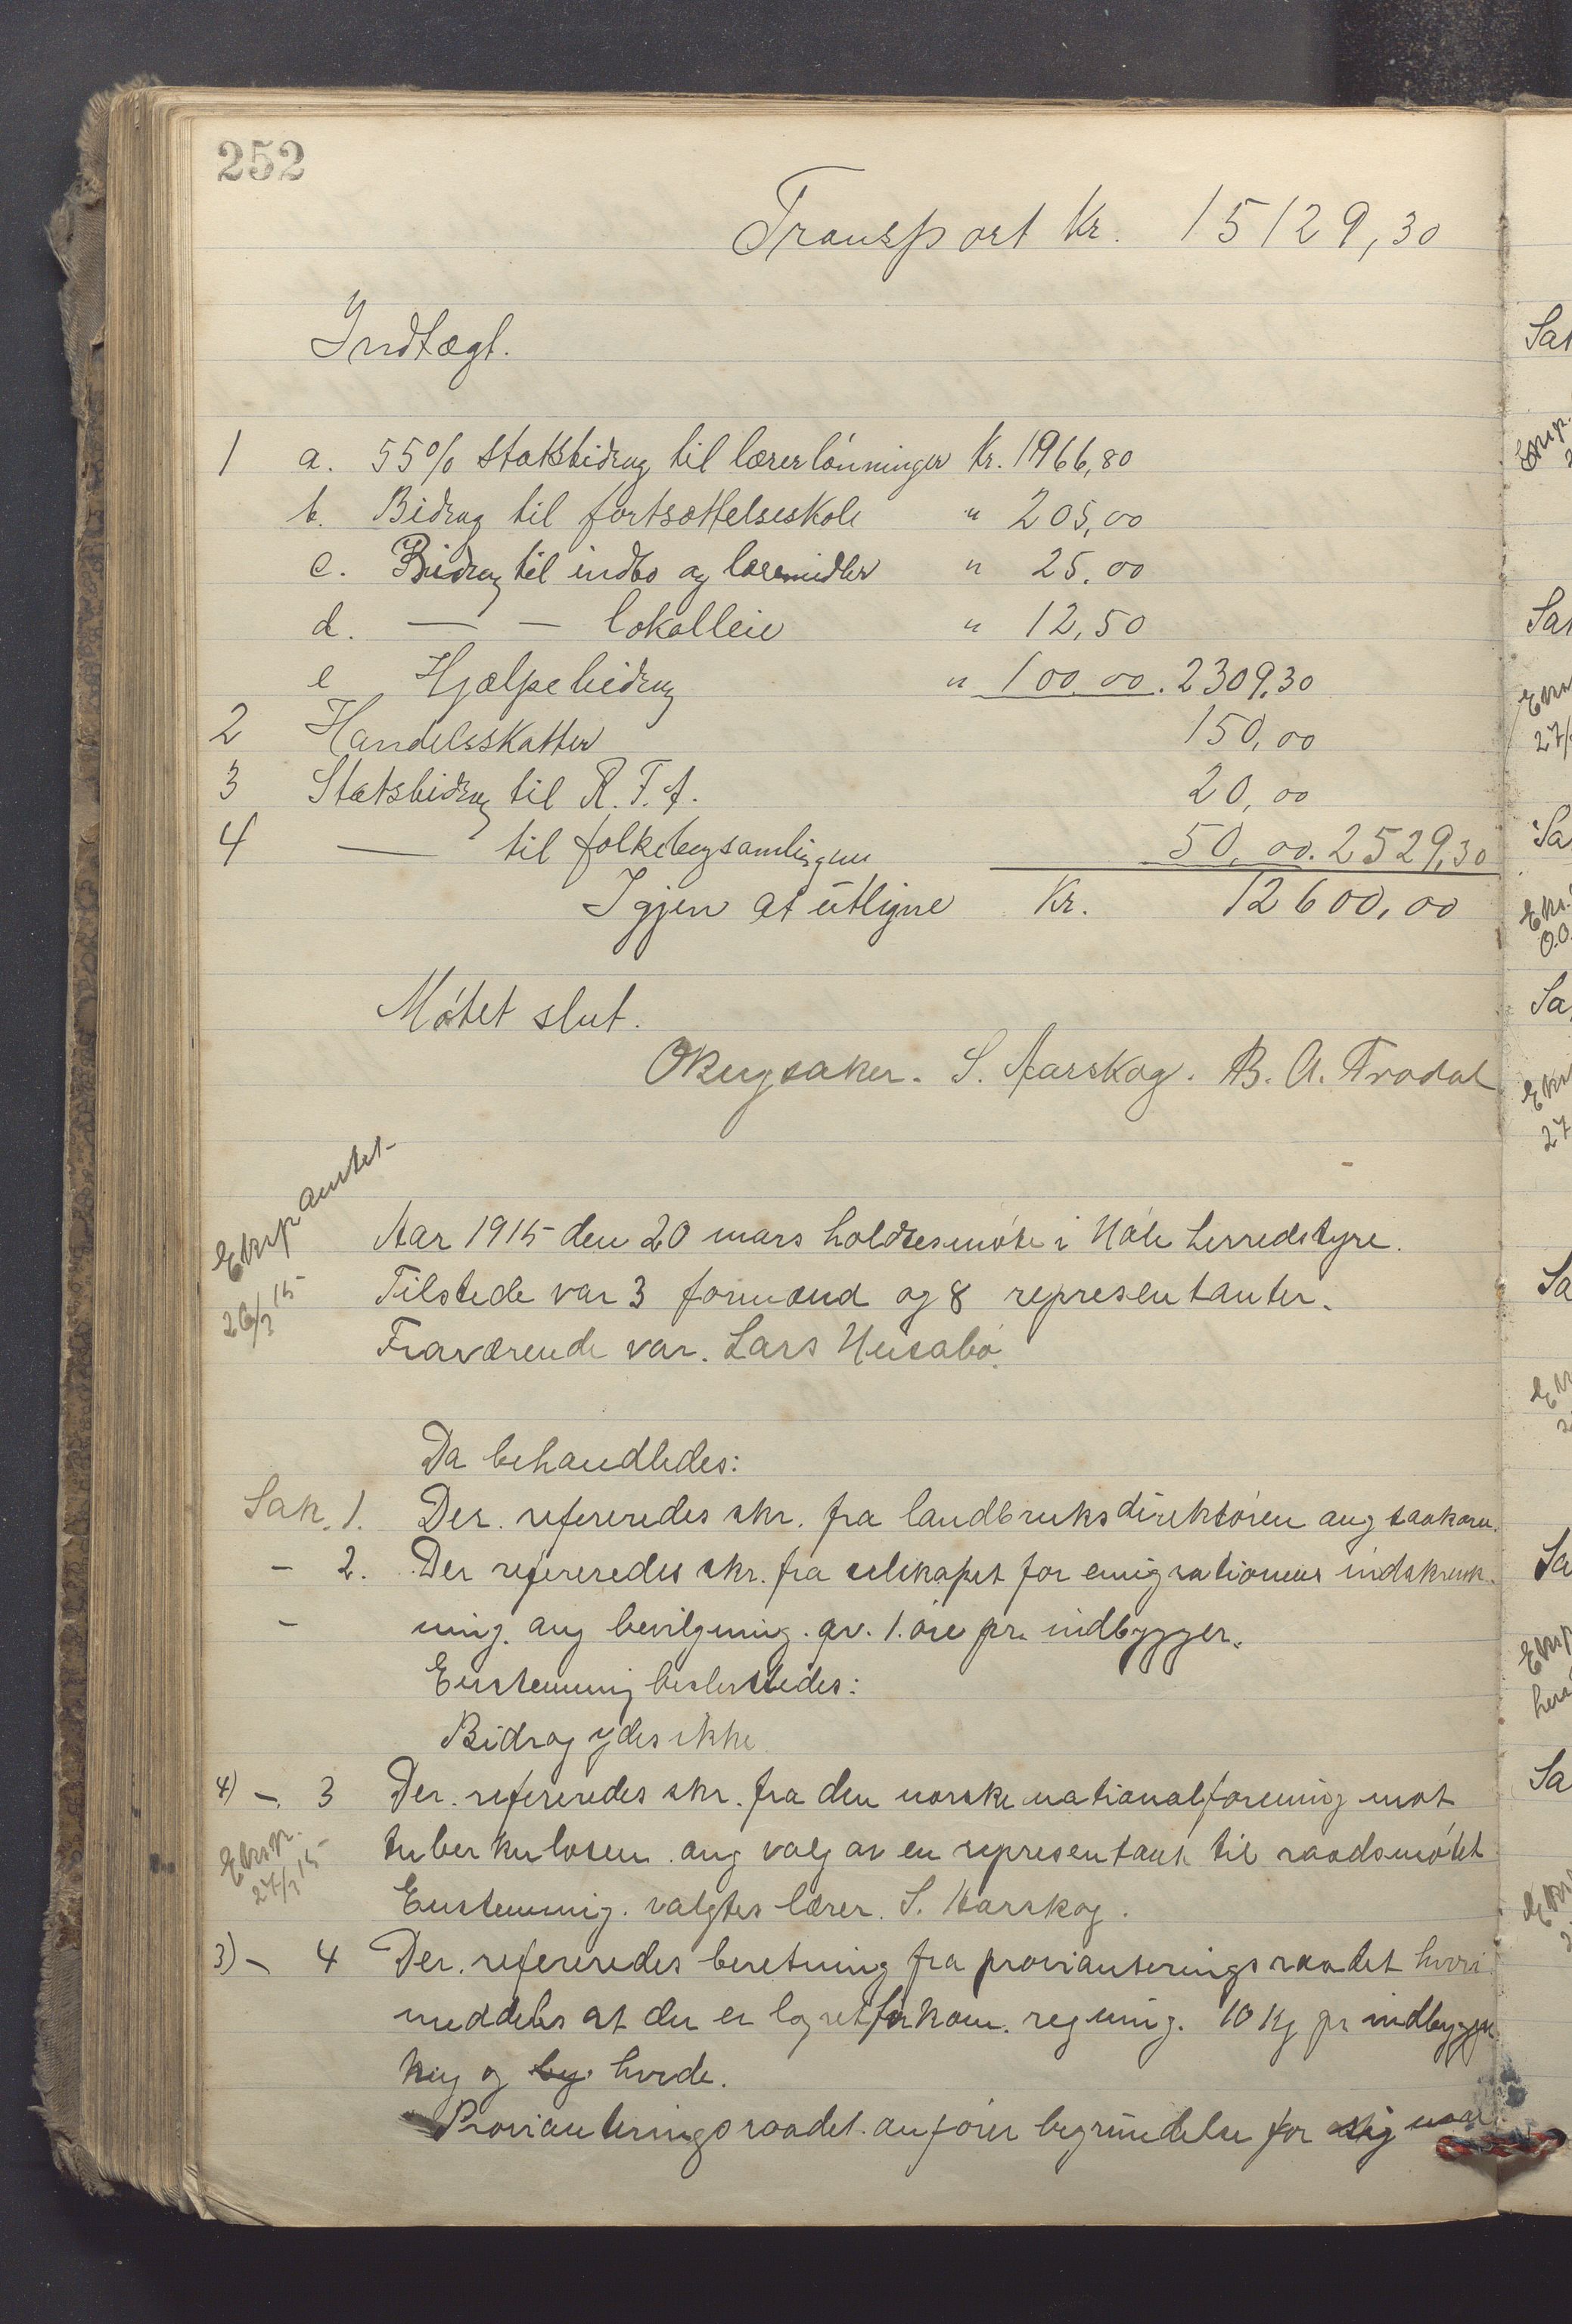 252
Transport Kr. 15129,30
Indtægt.
1 a. 55% statsbidrag til lærerlönninger Kr. 1966,80
b. Bidrag til fortsættelseskole " 205,00
c. Bidrag til indbo og læremidler " 25.00
d. — — lokalleie " 12,50
e Hjælpebidrag " 100.00. 2309,30
2 Handelsskatter 150,00
3 Statsbidrag til R. F. A. 20,00
4 — til folkebogsamlingen 50,00. 2529,30
Igjen at utligne Kr. 12600,00
Mötet slut.
S. Aarskog. B. A. Trodal
Eksp amtet
26/3 15
Aar 1915 den 20 mars holdtes möte i Höle herredstyre.
Tilstede var 3 formænd og 8 representanter.
Fraværende var. Lars Husabö.
Da behandledes:
Sak. 1. Der. refereredes skr. fra landbruksdirektören ang saakorn.
- 2. Der refereredes skr. fra selskapet for emigrationens indskrænk-
- ning. ang bevilgning. av. 1. öre pr. indbygger.
Enstemmig besluttedes:
Bidrag ydes ikke
4) -. 3 Der. refereredes skr. fra den norske nationalforening mot
tuberkulosen. ang valg av en representant til raadsmötet
Eksp.
27/3 15
Enstemmig. valgtes lærer. S. Aarskog.
3) - 4 Der. refereredes beretning fra provianteringsraadet hvori
meddeles at der er lagret for kom. regning. 10 kg pr indbygger
rug og byg hvede.
Provianteringsraadet. anförer begrundelse for